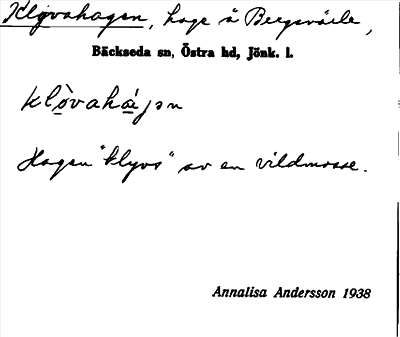 Klovahagen, hage å Bergsvärle,
Bäckseda sn, Östra hd, Jönk. l.
klo̱vahá̱jən
Hagen "klyvs" av en vildmosse.
Annalisa Andersson 1938